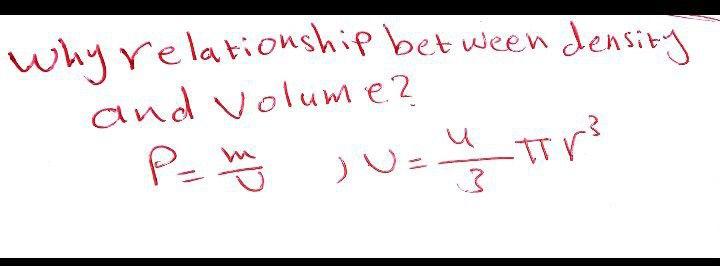 Why relationship between density
and volume?
P = m/v , v = 4/3 πr³